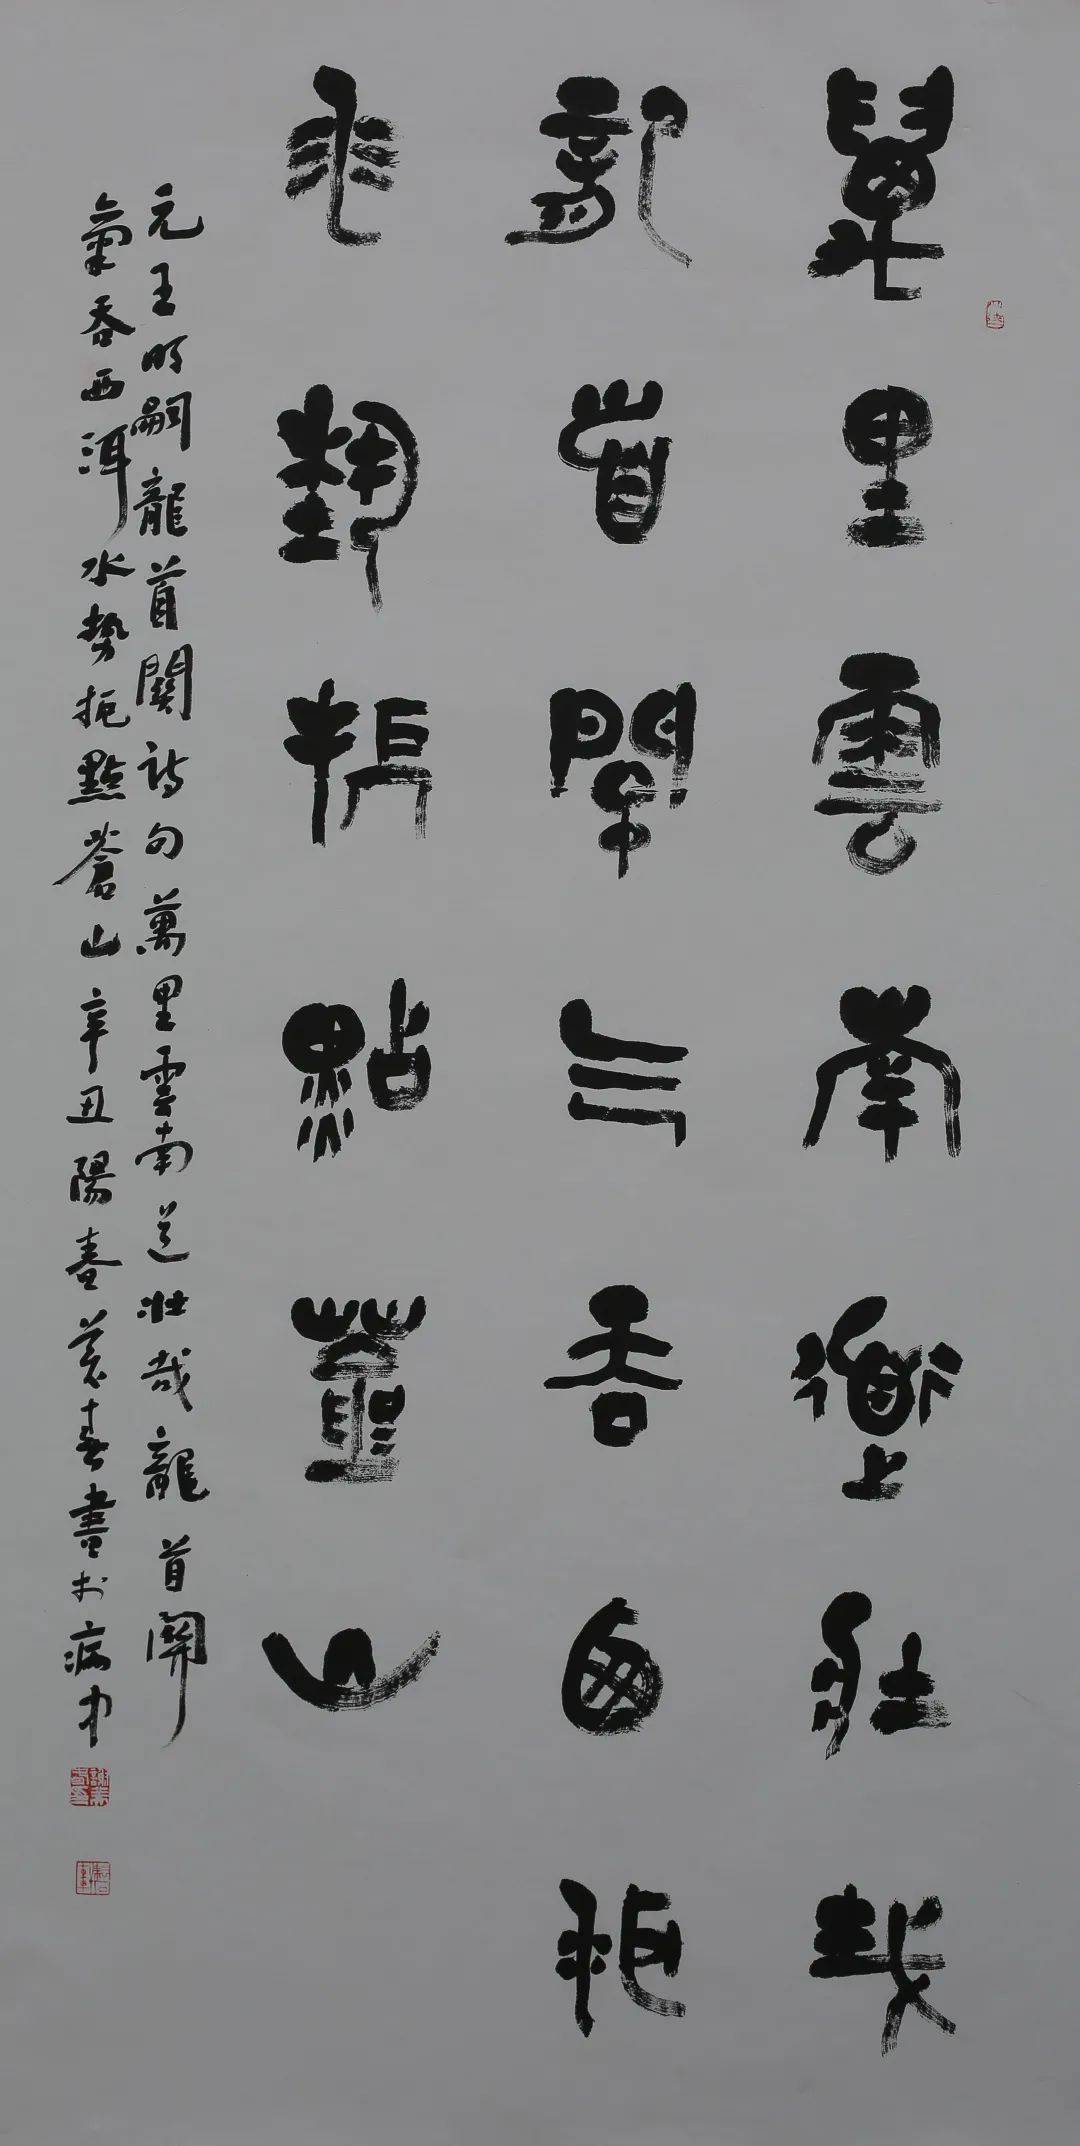 萬里雲南道壯哉
龍首關气吞西洱
水勢扼點蒼山
元王昕嗣龍首關詩句萬里雲南道壯哉龍首關
氣吞西洱水勢扼點蒼山辛丑陽春美春書於病中